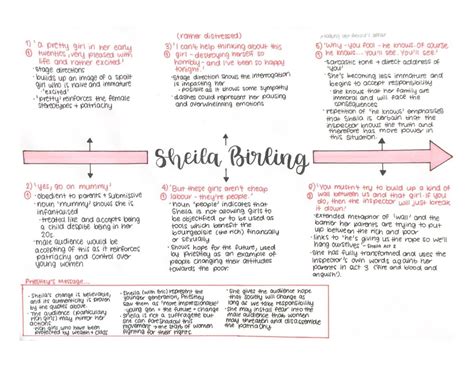 1) 'a pretty girl in her early
twenties, very pleased with
life and rather excited'
- stage direction
- builds up an image of a spoilt
girl who is naive and immature
- 'excited'
- 'pretty' reinforces the female
stereotypes + patriachy
(rather distressed)
3) 'I can't help thinking about this
girl - destroying herself so
horribly - and I've been so happy
tonight.'
- stage direction shows the interrogation
is impacting her
- positive as it shows some sympathy
- dashes could represent her pausing
and overwhelming emotions
5) 'Why - you fool - he knows. Of course
he knows... You'll see. You'll see.'
- sarcastic tone + direct address of
'you'
- She's becoming less immature and
begins to accept responsibility
- she knows that her family are
immoral and will face the
consequences.
- repetition of 'he knows' emphasises
that Sheila is certain that the
inspector knows the truth and
therefore has more power in
this situation.
Sheila Birling
2) 'yes, go on mummy'
- obedient to parents + submissive
- noun 'mummy' shows she is
infantalised
- treated like and accepts being
a child despite being in her
20s
- male audience would be
accepting of this as it reinforces
patriachy and control over
young women
4) 'But these girls aren't cheap
labour - they're people.'
- noun 'people' indicates that
Sheila is not allowing girls to
be objectified or to be used as
tools which benefit the
uncorrupted rich (not) financially
or sexually
- shows hope for the future, used
by Priestley as an example of
people changing their attitudes
towards the poor
6) 'You mustn't try to build up a kind of
wall between us and that girl. If you
do, then the inspector will just break
it down'
- extended metaphor of 'wall' and the
barrier her parents are trying to put
up between the rich and poor
- links to 'he's giving us the rope so we'll
hang ourselves' - Sheila Act 2
- She has fully transformed and uses the
inspector's own words again her
parents in act 3 (fire and blood and
anguish).
Priestley's message...
- Sheila's change is believable,
and its authenticity is proven
by the quotes above.
- The audience (particularly
rich girls) may mirror her
actions
- rich girls who have been
protected by wealth + class
- Sheila (with Eric) represent the
younger generation, Priestley
saw them as 'more impressionable'
- young gen = the future + change
- Sheila is not a suffragette but
she can foreshadow this
movement → the start of women
fighting for their rights.
- She gives the audience hope
that society will change as long
as we take responsibility
- She may instas fear into the
male audience that women
may threaten and disassemble
the patriachy